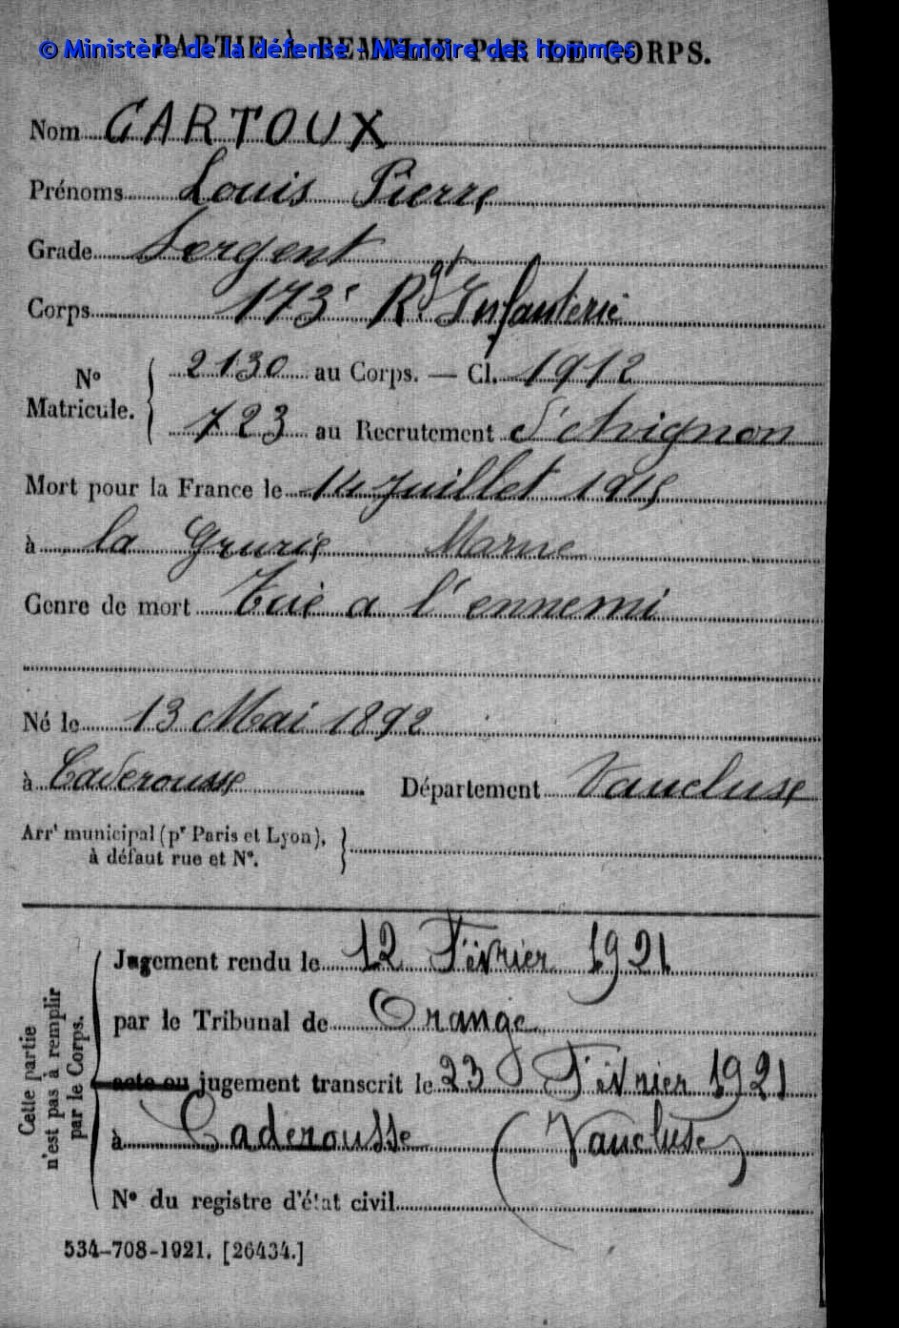 PARTIE À REMPLIR PAR LE CORPS.
© Ministère de la défense - Mémoire des hommes
Nom GARTOUX
Prénoms Louis Pierre
Grade Sergent
Corps 173e Rgt Infanterie
No Matricule. { 2130 au Corps. — Cl. 1912
723 au Recrutement d'Avignon
Mort pour la France le 14 Juillet 1915
à la Grurie Marne
Genre de mort Tué a l'ennemi
Né le 13 Mai 1892
à Caderousse Département Vaucluse
Arrt municipal (pr Paris et Lyon), à défaut rue et N°. }
Cette partie n'est pas à remplir par le Corps.
Jugement rendu le 12 Février 1921
par le Tribunal de Orange
acte ou jugement transcrit le 23 Février 1921
à Caderousse (Vaucluse)
N° du registre d'état civil
534-708-1921. [26434.]